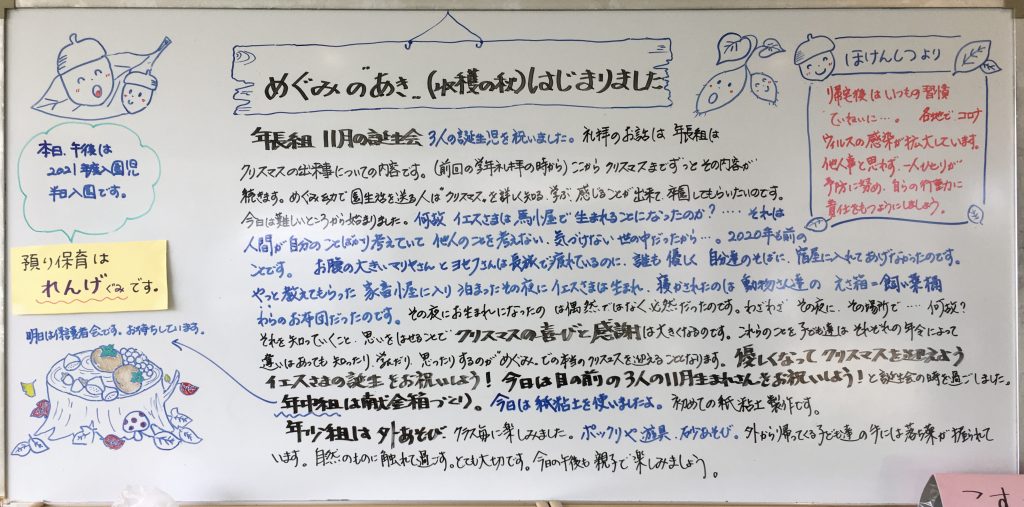 めぐみのあき、(収穫の秋)はじまりました
年長組 11月の誕生会 3人の誕生児を祝いました。礼拝のお話は 年長組は
クリスマスの出来事についての内容です。(前回の学年礼拝の時から)ここから クリスマスまでずっとその内容が
続きます。めぐみ幼で園生活を送る人は"クリスマスを詳しく知る、学ぶ、感じることが出来、卒園してもらいたいのです。
今日は難しいところから始まりました。何故 イエスさまは馬小屋で生まれることになったのか?‥‥それは
人間が自分のことばかり考えていて 他人のことを考えない、気づけない世の中だったから…。2020年も前の
ことです。 お腹の大きいマリヤさんとヨセフさんは長旅で疲れているのに、誰も優しく 自分達のそばに、宿屋に入れてあげなかったのです。
やっと教えてもらった 家畜小屋に入り 泊まったその夜にイエスさまは生まれ、寝かされたのは 動物さん達の えさ箱=飼い葉桶
わらのお布団だったのです。その夜にお生まれになったの は偶然ではなく必然だったのです。わざわざ その夜に、その場所で‥‥何故?
それを知っていくこと、思いをはせることで クリスマスの喜びと感謝は大きくなるのです。これらのことを子ども達は それぞれの年令によって
違いはあっても 知ったり、学んだり、思ったりするのが"めぐみ"での本当のクリスマスを迎えることになります。優しくなってクリスマスを迎えよう
イエスさまの誕生をお祝いしよう! 今日は目の前の3人の11月生まれさんをお祝いしよう!と誕生会の時を過ごしました。
年中組は献金箱づくり。今日は紙粘土を使いましたよ。初めての紙粘土製作です。
年少組は外あそび クラス毎に楽しみました。ポックリや遊具、砂あそび。外から帰ってくる子ども達の手には落ち葉が握られて
います。自然のものに触れて過ごす。とても大切です。今日の午後も親子で楽しみましょう。
本日、午後は
2021年度入園児
半日入園です。
預り保育は
れんげぐみです。
明日は保護者会です。お待ちしています。
ほけんしつより
帰宅後はいつもの習慣
ていねいに…。 各地で、コロナ
ウィルスの感染が拡大しています。
他人事と思わず、一人ひとりが
予防に努め、自らの行動に
責任をもつようにしましょう。
こす